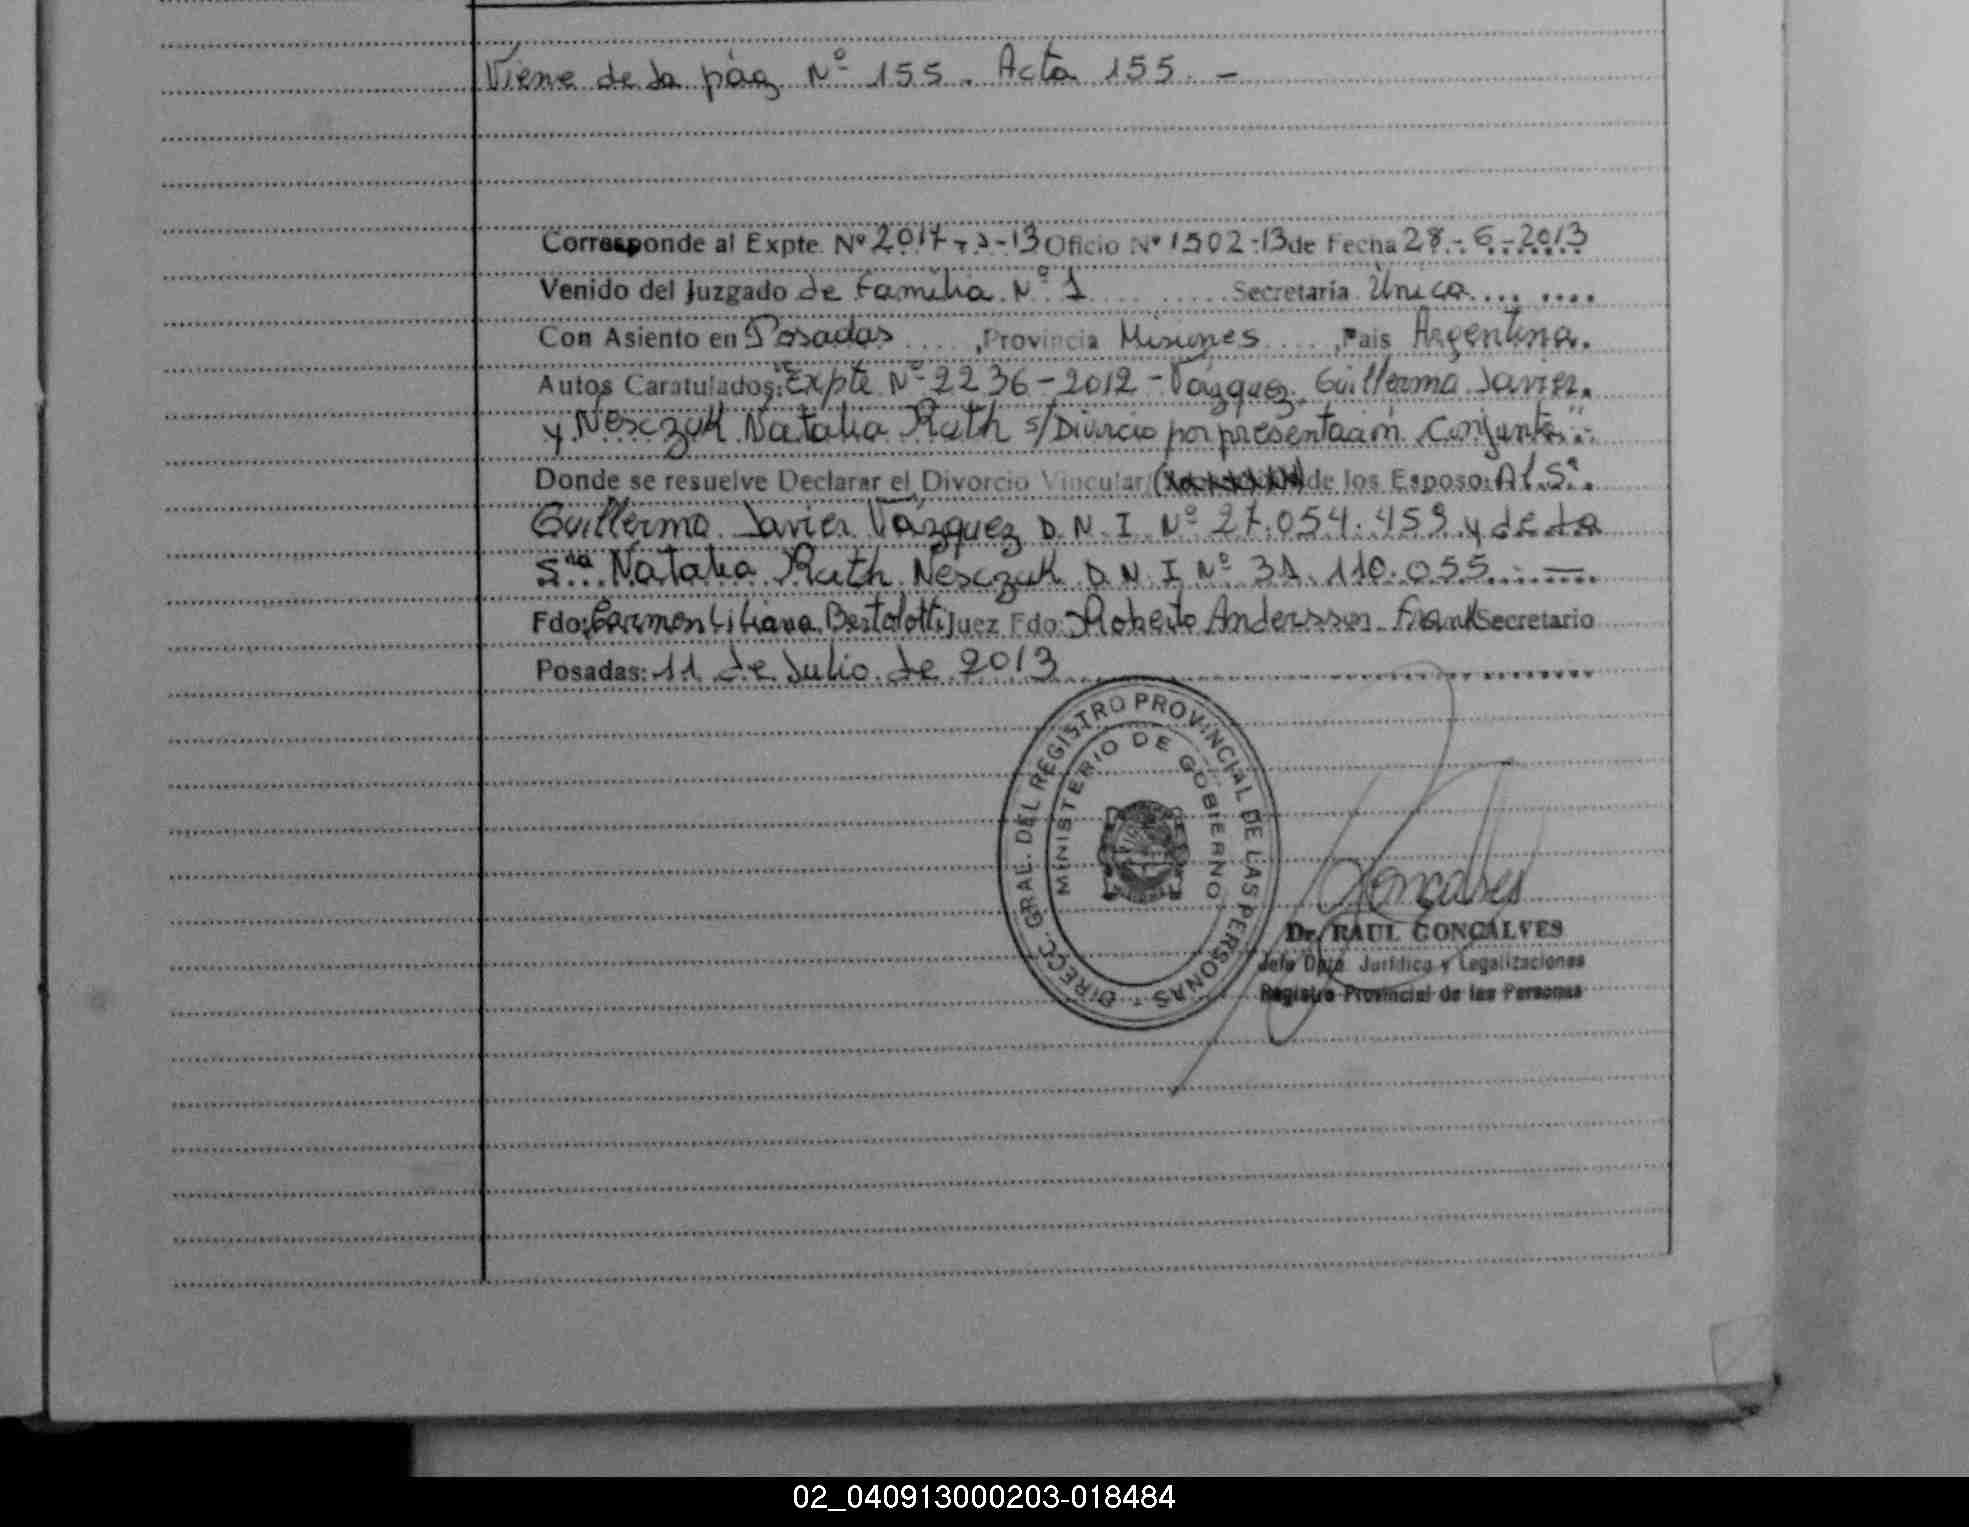 Viene de la pág Nº 155. Acta 155. -
Corresponde al Expte. Nº 2017 - -13 Oficio Nº 1502-13 de Fecha 28-6-2013
Venido del Juzgado de Familia Nº 1 Secretaría Única
Con Asiento en Posadas, Provincia Misiones, Pais Argentina.
Autos Caratulados: "Expte Nº 2236-2012 - Vázquez Guillermo Javier
y Nesczuk Natalia Ruth s/Divorcio por presentación conjunta"
Donde se resuelve Declarar el Divorcio Vincular de los Esposo: Al Sr.
Guillermo Javier Vázquez D.N.I. Nº 27.054.459 y de la
Sra Natalia Ruth Nesczuk D.N.I Nº 31.110.055. -
Fdo: Carmen Liliana Bertolotti Juez Fdo: Roberto Andersson Frank Secretario
Posadas: 11 de Julio de 2013
DIRECC. GRAL. DEL REGISTRO PROVINCIAL DE LAS PERSONAS
MINISTERIO DE GOBIERNO
Dr. RAUL GONÇALVES
Jefe Dpto. Jurídico y Legalizaciones
Registro Provincial de las Personas
02_040913000203-018484